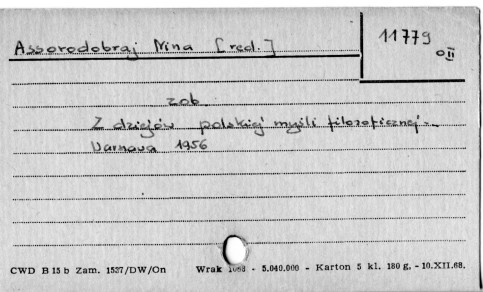 Assorodobraj Nina [red.]
11779
OII
zob.
Z dziejów polskiej myśli filozoficznej.
Warszawa 1956
CWD B 15 b Zam. 1537/DW/On Wrak 1068 - 5.040.000 - Karton 5 kl. 180 g, - 10.XII.68.